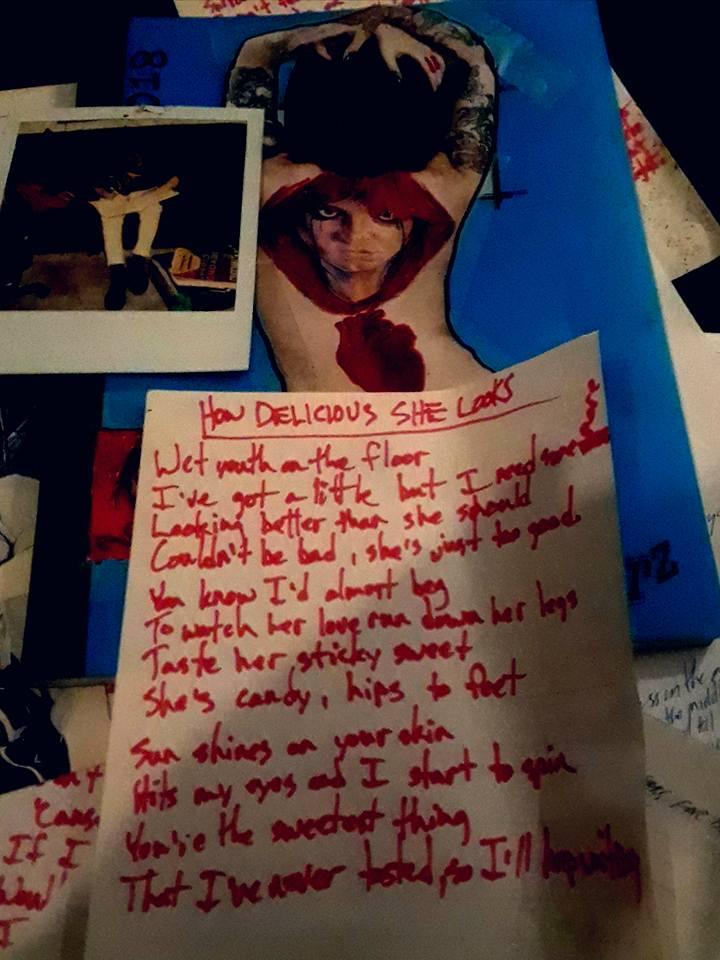 HOW DELICIOUS SHE LOOKS
Wet mouth on the floor
I've got a little but I need some
Looking better than she should
Couldn't be bad, she's just too good
You know I'd almost beg
To watch her love run down her legs
Taste her sticky sweet
She's candy, hips to feet
Sun shines on your skin
Hits my eyes and I start to spin
You're the sweetest thing
That I've never tasted, so I'll
'Cause
If I
I